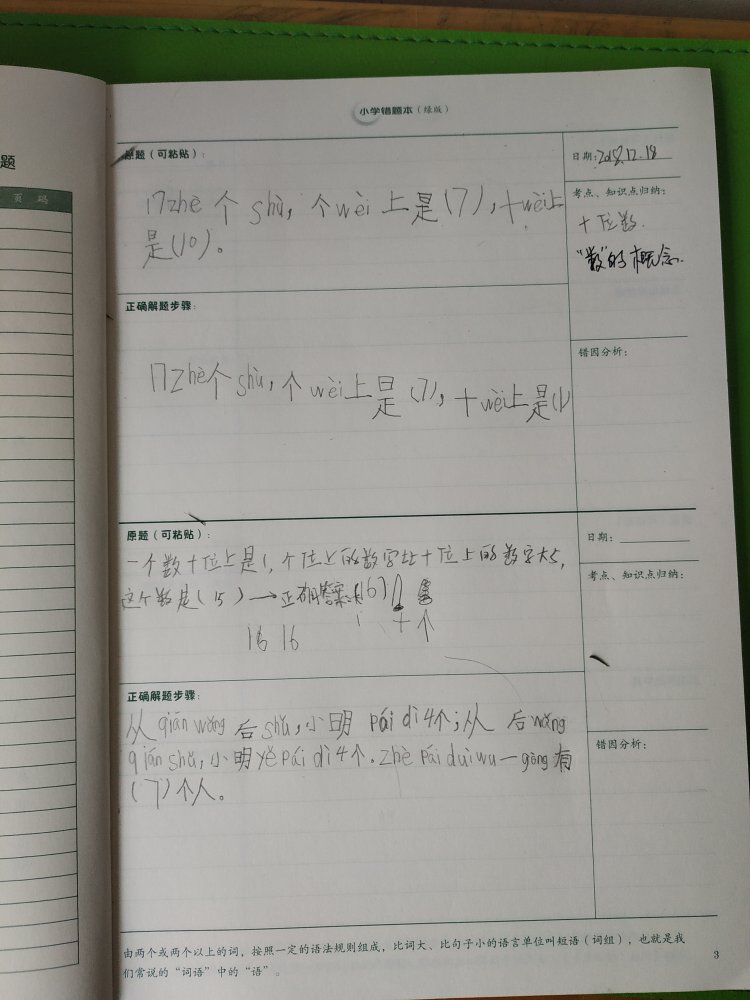 题
页 码
小学错题本（绿版）
原题（可粘贴）：
17zhè个shù，个wèi上是(7)，十wèi上
是(10)。
日期：2018.12.18
考点、知识点归纳：
十位数.
“数”的概念.
正确解题步骤：
17zhè个shù，个wèi上是(7)，十wèi上是(1)
错因分析：
原题（可粘贴）：
一个数十位上是1，个位上的数字比十位上的数字大5，
这个数是（15）→正确答案(16)
十 个
16 16
日期：
考点、知识点归纳：
正确解题步骤：
从qián wǎng后shǔ，小明pái dì 4个；从后wǎng
qián shǔ，小明yě pái dì 4个.zhè pái duì wu一gòng有
(7)个人。
错因分析：
由两个或两个以上的词，按照一定的语法规则组成，比词大、比句子小的语言单位叫短语（词组），也就是我
们常说的“词语”中的“语”。
3